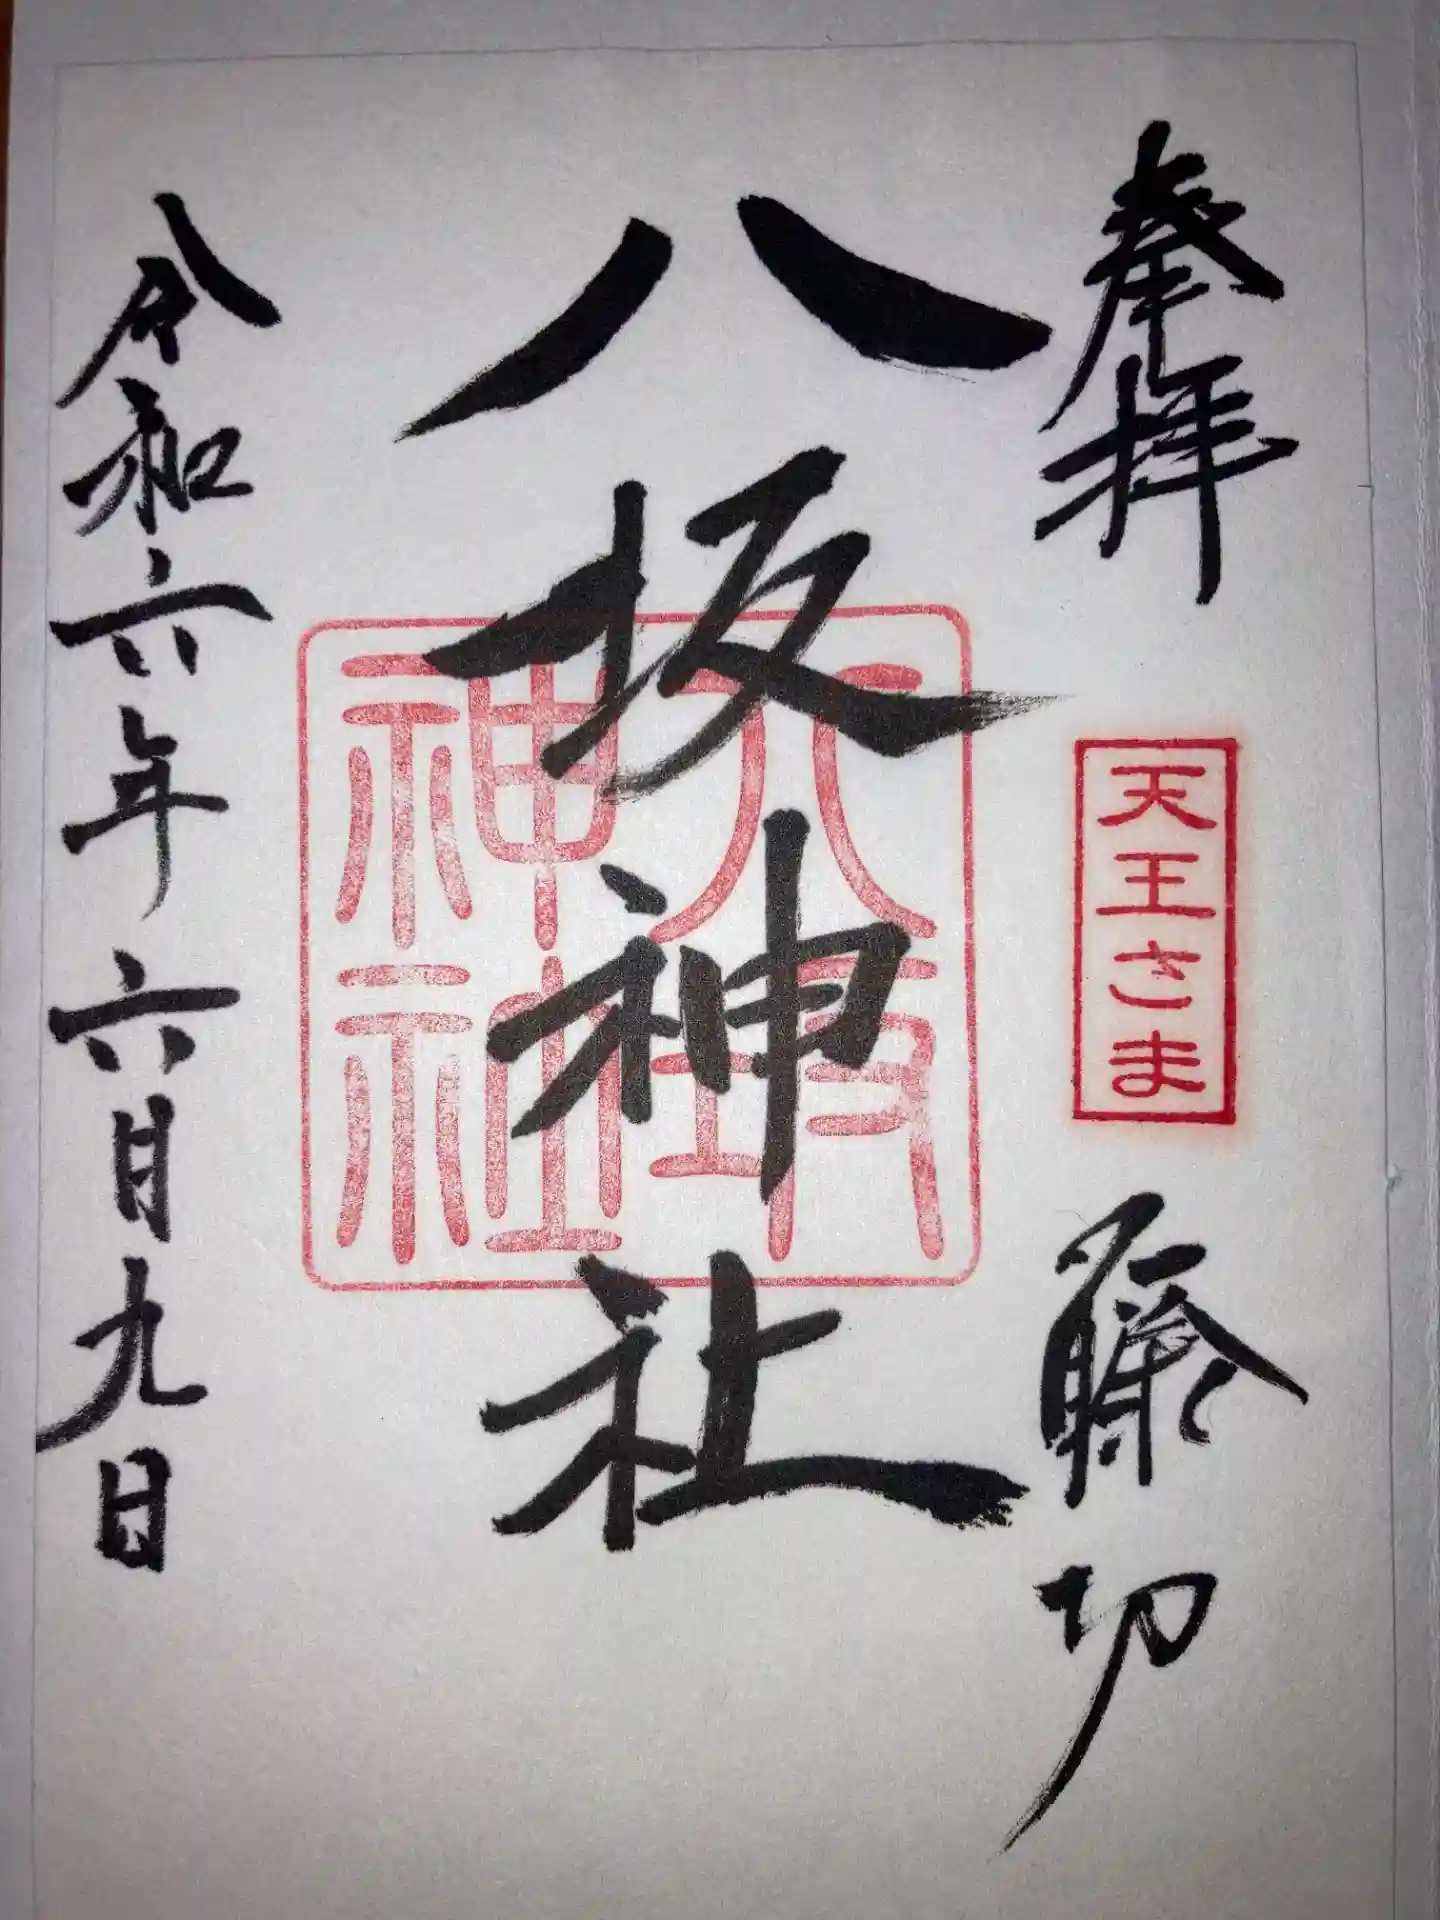 奉拝
天王さま
切
八坂神社
八坂神社
令和六年六月九日